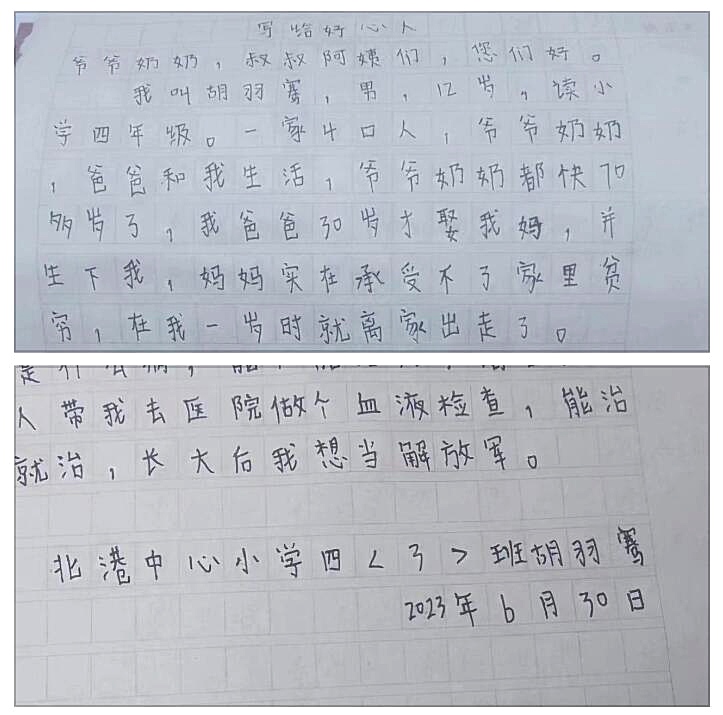 写给好心人
爷爷奶奶，叔叔阿姨们，您们好。
我叫胡羽骞，男，12岁，读小
学四年级。一家4口人，爷爷奶奶
，爸爸和我生活，爷爷奶奶都快70
多岁了，我爸爸30岁才娶我妈，并
生下我，妈妈实在承受不了家里贫
穷，在我一岁时就离家出走了。
人带我去医院做个血液检查，能治
就治，长大后我想当解放军。
北港中心小学四<3>班胡羽骞
2023年6月30日